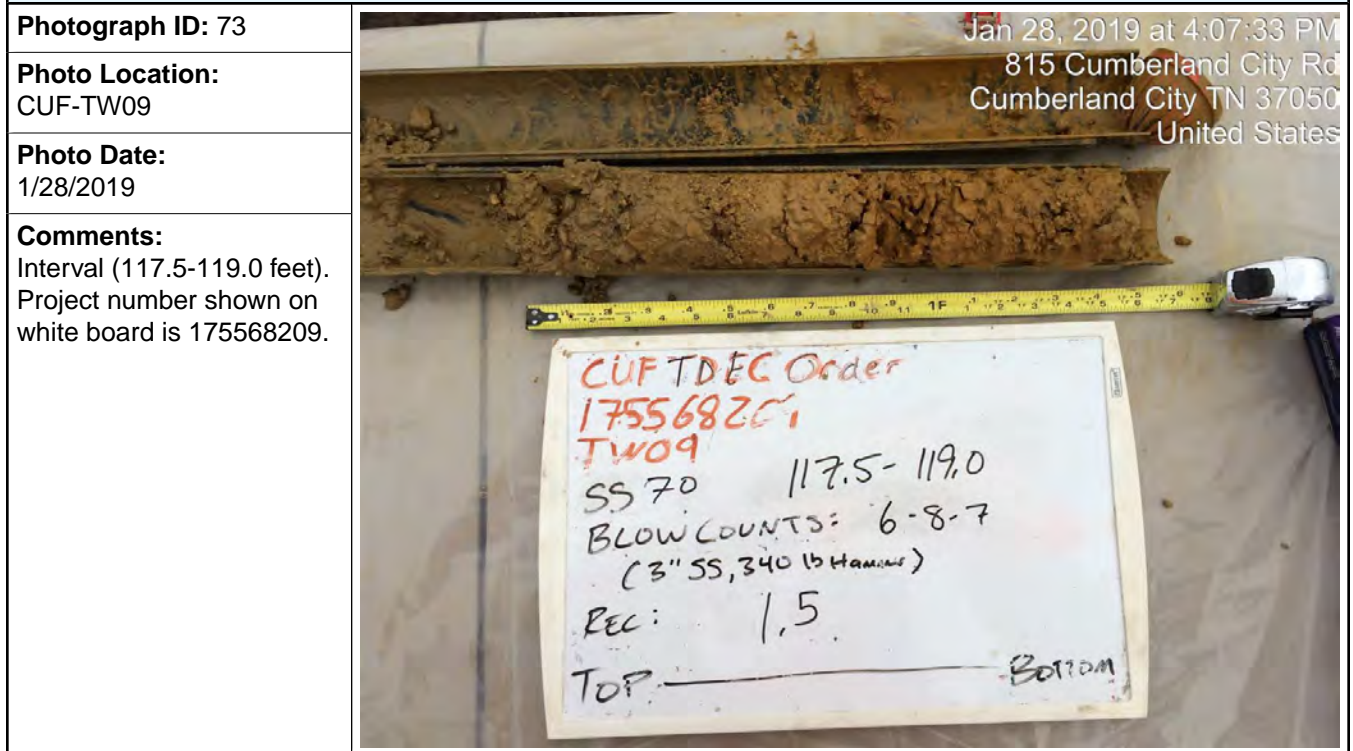 Photograph ID: 73
Photo Location:
CUF-TW09
Photo Date:
1/28/2019
Comments:
Interval (117.5-119.0 feet).
Project number shown on
white board is 175568209.
Jan 28, 2019 at 4:07:33 PM
815 Cumberland City Rd
Cumberland City TN 37050
United States
1F
CUF TDEC Order
TW09
SS 70 117.5-119.0
BLOW COUNTS: 6-8-7
(3" SS, 340 lb Hammer)
REC: 1.5
TOP BOTTOM